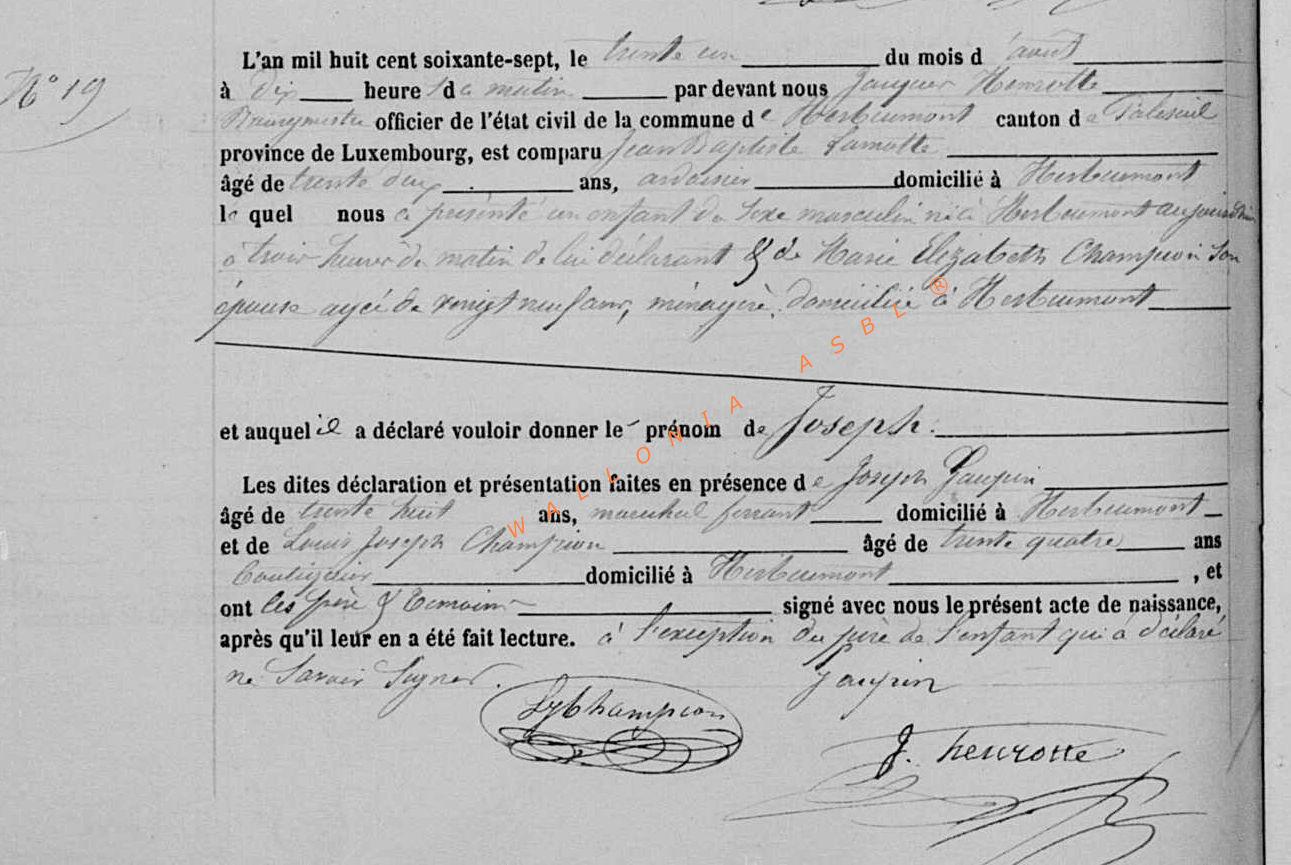 N° 19
L'an mil huit cent soixante-sept, le trente un du mois d'août
à Dix heures du matin par devant nous Jacques Henrotte
Bourgmestre officier de l'état civil de la commune de Herbeumont canton de Paliseul
province de Luxembourg, est comparu Jean Baptiste Lamotte
âgé de trente deux ans, ardoisier domicilié à Herbeumont
lequel nous a présenté un enfant du sexe masculin né à Herbeumont aujourd'hui
à trois heures du matin de lui déclarant & de Marie Elizabeth Champion son
épouse agée de vingt neuf ans, ménagère, domiciliée à Herbeumont
et auquel il a déclaré vouloir donner le prénom de Joseph.
Les dites déclaration et présentation faites en présence de Joseph Jaupin
âgé de trente huit ans, marechal ferrant domicilié à Herbeumont
et de Louis Joseph Champion âgé de trente quatre ans
Boutiquier domicilié à Herbeumont, et
ont les père & temoins signé avec nous le présent acte de naissance,
après qu'il leur en a été fait lecture. à l'exception du père de l'enfant qui a déclaré
ne Savoir Signer.
Jaupin
LJChampion
J. henrotte
WALLONIA ASBL ®